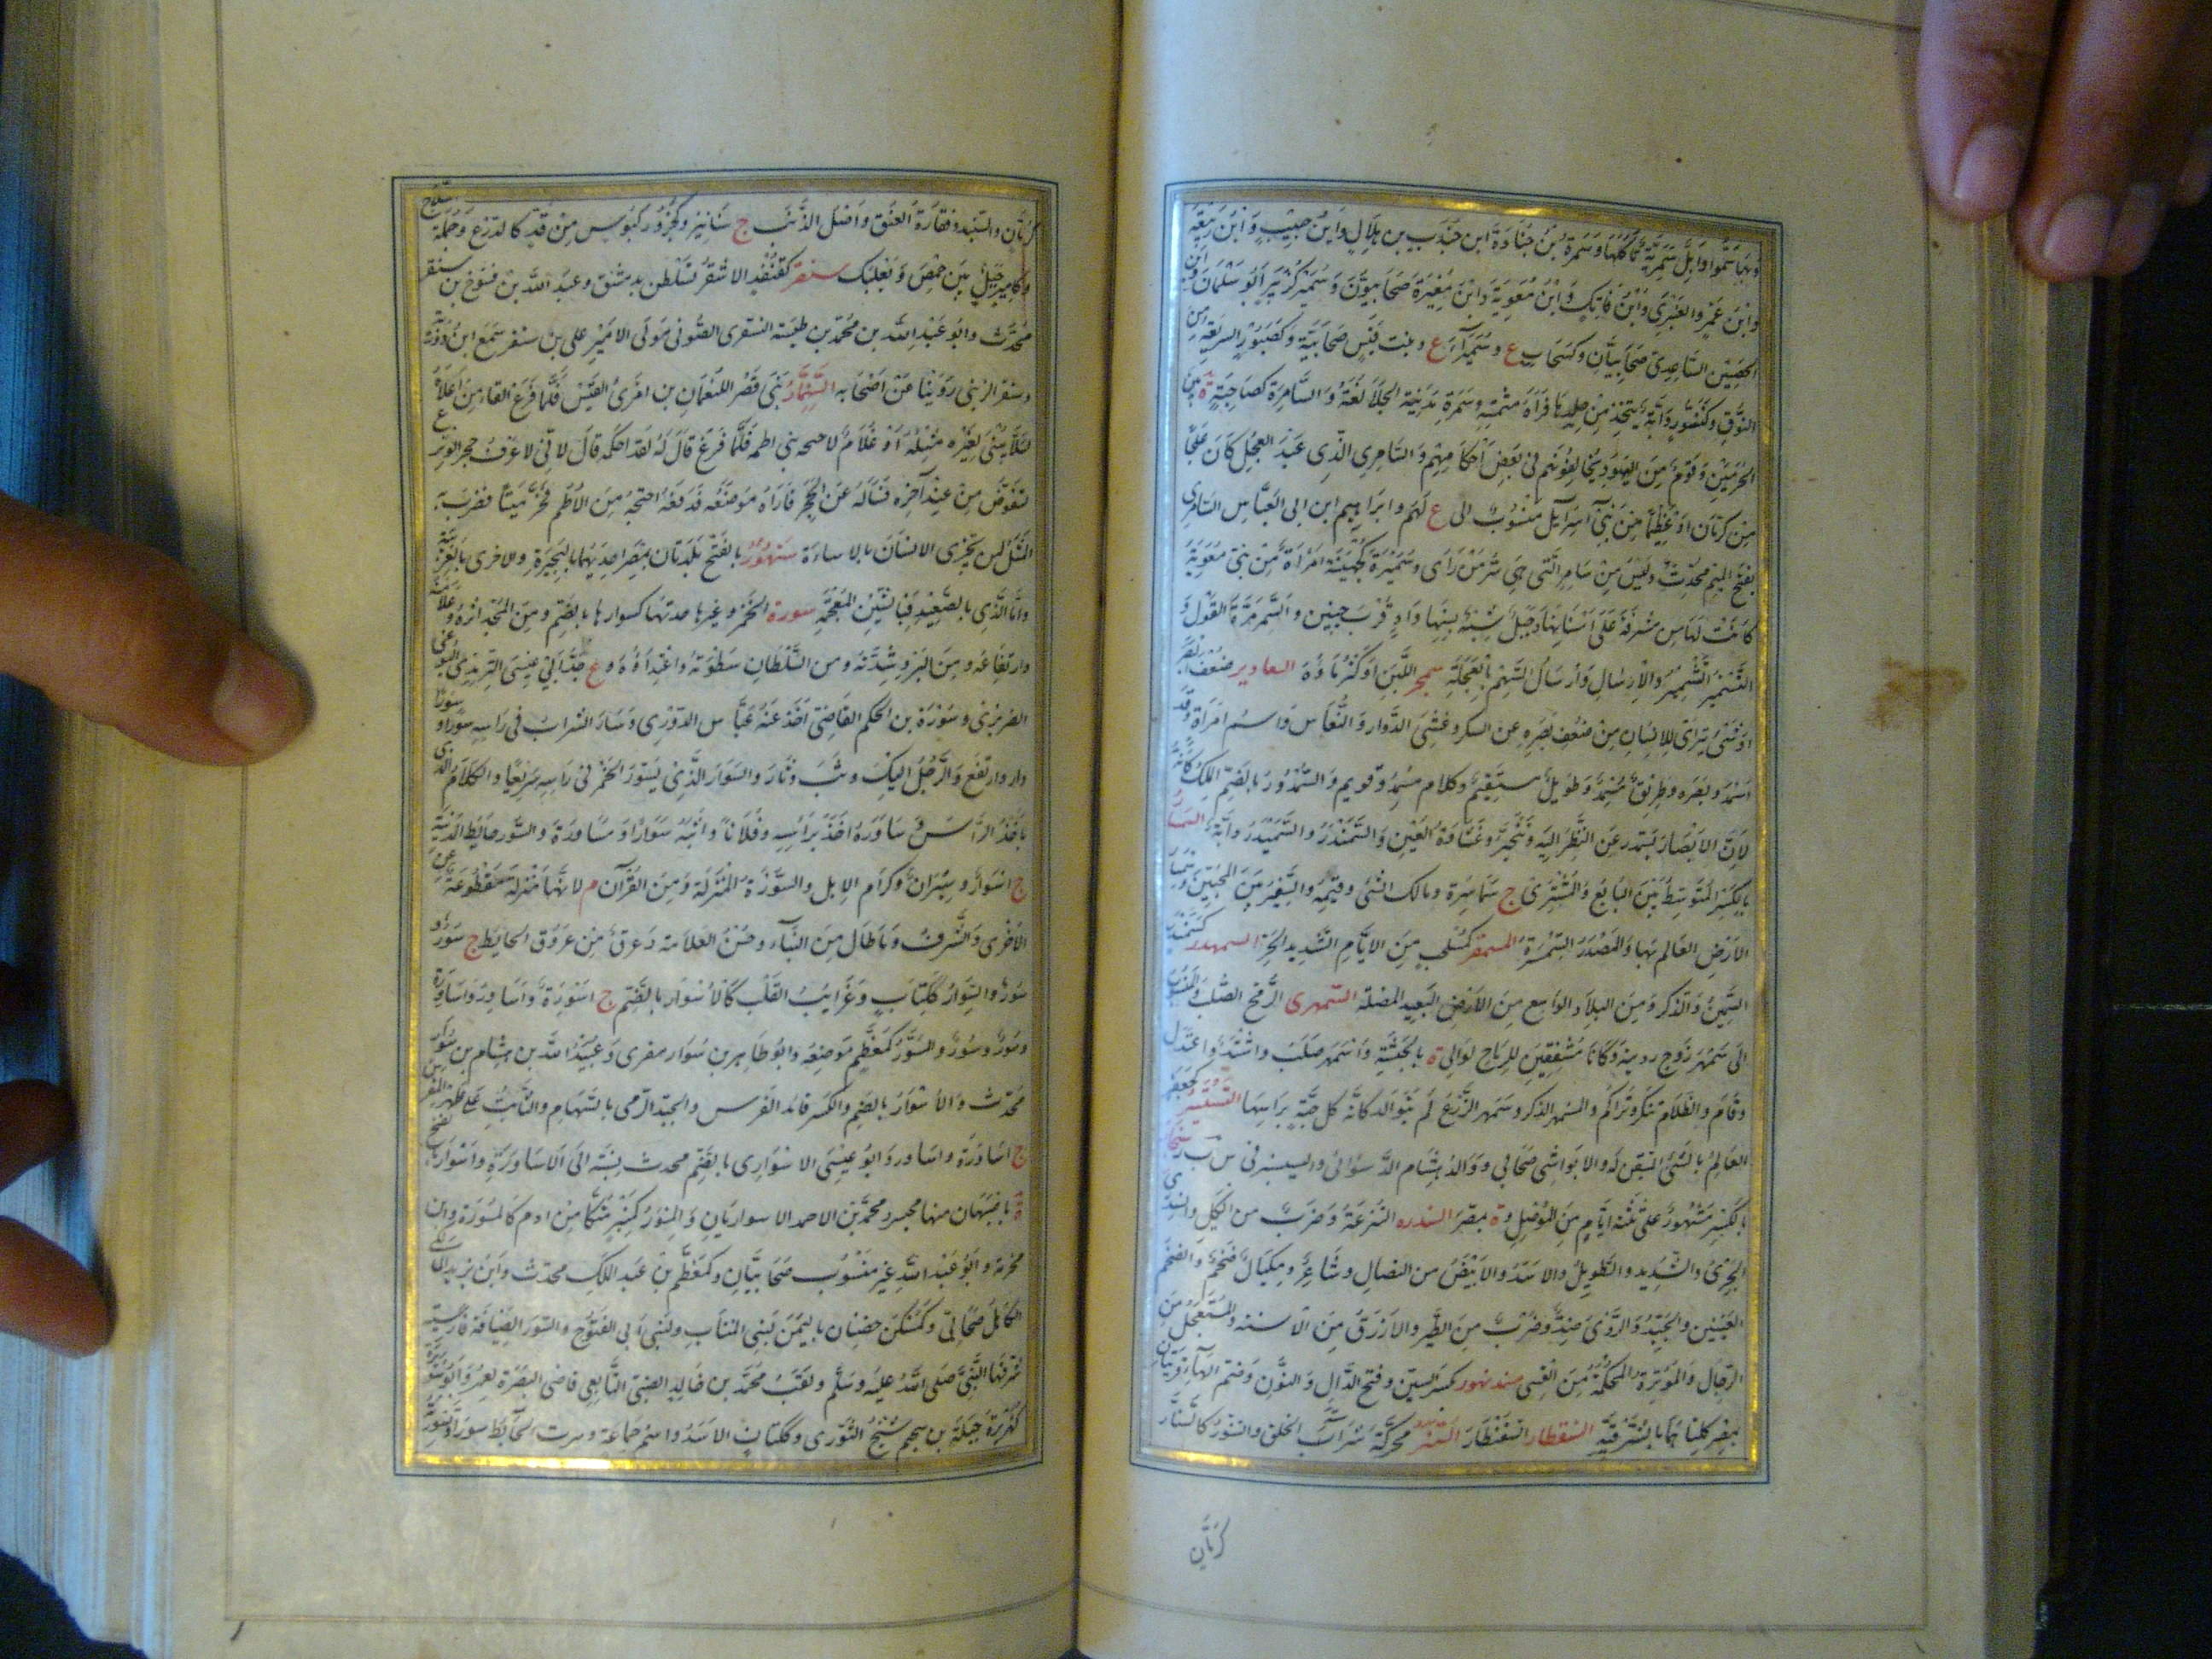 وبها سموا وابل سمرية تاكلها وسمرة بن جنادة ابن جندب بن هلال وابن حبيب وابن ربيعة
وابن عمرو العنبري وابن فاتك وابن معوية وابن مغيرة صحابيون وسمير كزبير ابو سلمان وابن
الحصين الساعدي صحابيان وكسحاب ع وسميراء ع وبنت قيس صحابية وكصبور السريعة من
النوق وكتنور دابة يتخذ من جلدها فراء مثمنة وسمرة مدينة الجلالغة والسامرة كصاحبة ة بين
الحرمين وقوم من اليهود يخالفونهم في بعض احكامهم والسامري الذي عبد العجل كان علجا
من كرمان او عظيما من بني اسرائيل منسوب الى ع لهم وابراهيم ابن ابي العباس السامري
بفتح الميم محدث وليس من سامر التي هي سر من رأى وسميرة كجهينة امراة من بني معوية
كانت لها سن مشرفة على اسنانها وجبل شبه بسنها واد قرب حنين والسمرمرة الغول و
التسمير التشمير والارسال وارسال السهم بالعجلة سمجر اللبن اكثر ماؤه السمادير ضعف البصر
او شئ يتراى للانسان من ضعف بصره عن السكر وغشي الدوار والنعاس واسم امراة وقد
اسمدر بصره وطريق مسمدر طويل مستقيم وكلام مسمدر قويم والسمدور بالضم الملك كانه
لان الابصار تسمدر عن النظر اليه وتتحير وغشاوة العين والسمندر والسميدر دابة السمسار
بالكسر المتوسط بين البايع والمشتري ج سماسرة ومالك الشئ وقيمه والسفير بين المحبين وسمسار
الارض العالم بها والمصدر السمسرة المسمقر كمشعل من الايام الشديد الحر السمهدر كسمندر
السمين والذكر ومن البلاد الواسع ومن الارض البعيد المضلة السمهري الرمح الصلب والمنسوب
الى سمهر زوج ردينة وكانا مثقفين للرماح او الى ة بالحبشة واسمهر صلب واشتد واعتدل
وقام والظلام تنكر وتراكم والسمهر الذكر وسمهر الزرع لم يتوالد كانه كل حبة براسها السنبر كجعفر
العالم بالشئ المتقن له والابواشي صحابي ووالد هشام الدستوائي والسيسنبر في س ب ر سنجار
بالكسر مشهور على ثلثة ايام من الموصل و ة بمصر السندرة السرعة وضرب من الكيل والسندري
الجرئ والشديد والطويل والاسد والابيض من النصال وشاعر ومكيال ضخم والضخم
العينين والجيد والردئ ضد وضرب من الطير والازرق من الاسنة والمستعجل من
الرجال والموترة المحكمة من القسي سندنهور كسر السين وفتح الدال والنون وضم الهاء قريتان
بمصر كلتاهما بالشرقية السنقطار السقنطار السنر محركة شراسة الخلق والسنور كالسنار
كرمان
كرمان والسيد وفقارة العنق واصل الذنب ج سنانير وكجزور لبوس من قد كالدرع وجملة السلاح
وكامير جبل بين حمص وبعلبك سنقر كقنفذ الاشقر تسلطن بدمشق وعبد الله بن فتوح بن سنقر
محدث وابو عبد الله بن محمد بن طيبة السنقري الصوفي مولى الامير علي بن سنقر سمع ابن
وسنقر الزيني روينا عن اصحابه السنمار بنى قصر للنعمان بن امرئ القيس فلما فرغ القاه من اعلاه
لئلا يبنى لغيره مثله او غلام لاحيحة بنى اطمه فلما فرغ قال له لقد احكمته قال لاني لاعرف حجرا لو نزع
لتقوض من عند آخره فساله عن الحجر فاراه موضعه فدفعه احيحة من الاطم فخر ميتا فضرب به
المثل لمن يجزى الاحسان بالاساءة سنهور بالفتح بلدتان بمصر احديهما بالبحيرة والاخرى بالغربية
واما الذي بالصعيد فبالشين المعجمة سورة الخمر وغيرها حدتها كسوارها بالضم ومن المجد اثره وعلامته
وارتفاعه ومن البرد شدته ومن السلطان سطوته واعتداؤه و ع جد ابي عيسى الترمذي البوغي
الضرير وسورة بن الحكم القاضي اخذ عنه عباس الدوري وسار الشراب في راسه سورا وسؤرا
دار وارتفع والرجل اليك وثب وثار والسوار الذي يسور الخمر في راسه سريعا والكلام الذي
ياخذ الراس وساوره اخذ براسه وفلانا واثبه سوارا ومساورة والسور حايط المدينة
ج اسوار وسيران وكرام الابل والسورة المنزلة ومن القرآن م لانها منزلة مقطوعة عن
الاخرى والشرف وما طال من البناء وحسن العلامة وعرق من عروق الحايط ج سور و
سور والسوار ككتاب وغراب القلب كالاسوار بالضم ج اسورة واساور واساورة
وسور وسور والمسور كمعظم موضعه وابو طاهر بن سوار مقري وعبيد الله بن هشام بن سوار
محدث والاسوار بالضم والكسر قائد الفرس والجيد الرمي بالسهام والثابت على ظهر الفرس
ج اساورة واساور وابو عيسى الاسواري بالضم محدث نسبة الى الاساورة واسوار بالفتح
ة باصبهان منها محمد بن الاحمد الاسواريان والمسور كمنبر متكا من ادم كالمسورة وابن
مخرمة وابو عبد الله غير منسوب صحابيان وكمعظم بن عبد الملك محدث وابن يزيد المالكي
الكاهلي صحابي وكمسكن حصنان باليمن لبني المنتاب ولبني ابي الفتوح والسور الضيافة فارسية
شرفها النبي صلى الله عليه وسلم ولقب محمد بن خالد الضبي التابعي قاضي البصرة لعمر وابو سويرة
كهريرة جبلة بن سحيم شيخ الثوري وككتان الاسد واسم جماعة وسرت الحايط سورا وسورته